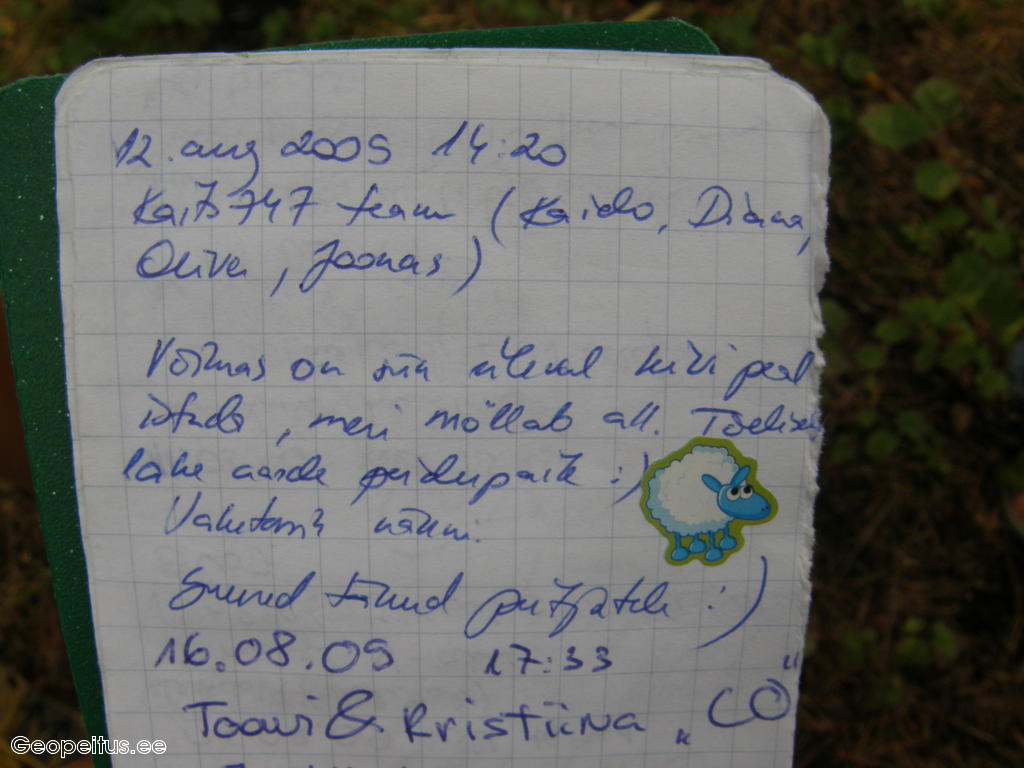 12. aug 2009 14:20
Kaits747 team (Kaido, Diana,
Oliver, Joonas)
Võimas on siin üleval kivi peal
istuda, meri möllab all. Tõeliselt
lahe aarde peidupaik :)
Vahetasin nänni.
Suured tänud peitjatele :)
16.08.09 17:33
Toowi & Kristiina „CÒ"
Geopeitus.ee